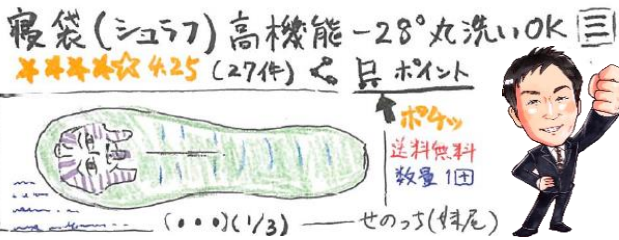 寝袋(シュラフ)高機能-28°丸洗いOK
★★★★☆ 4.25 (27件) ポイント
ポケッ
送料無料
数量 1
(•••)(1/3) せのっち(妹尾)